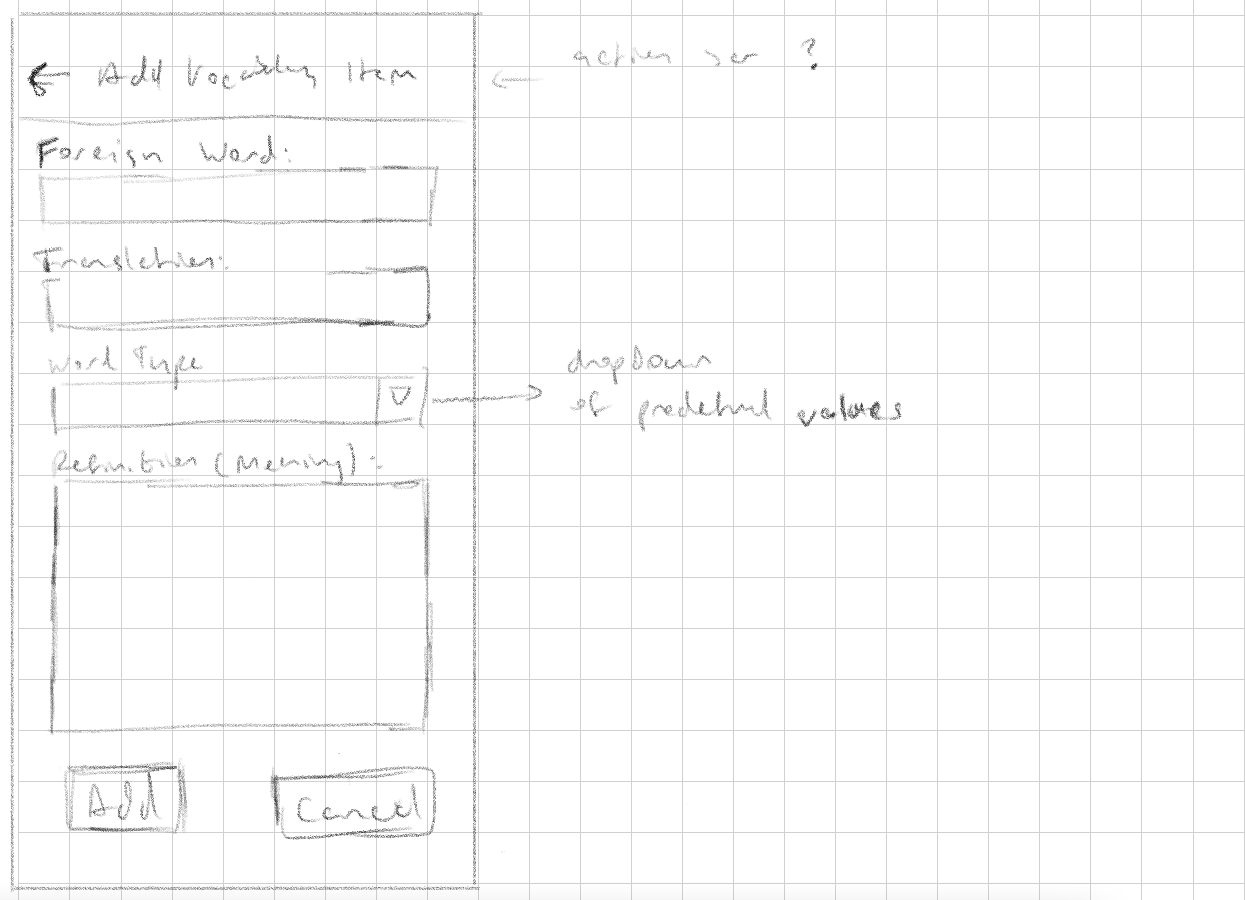 ← Add Vocabulary Item
← action bar ?
Foreign Word:
Translation:
Word Type
V
→ dropdown
of predefined values
Definition (Meaning):
Add
Cancel